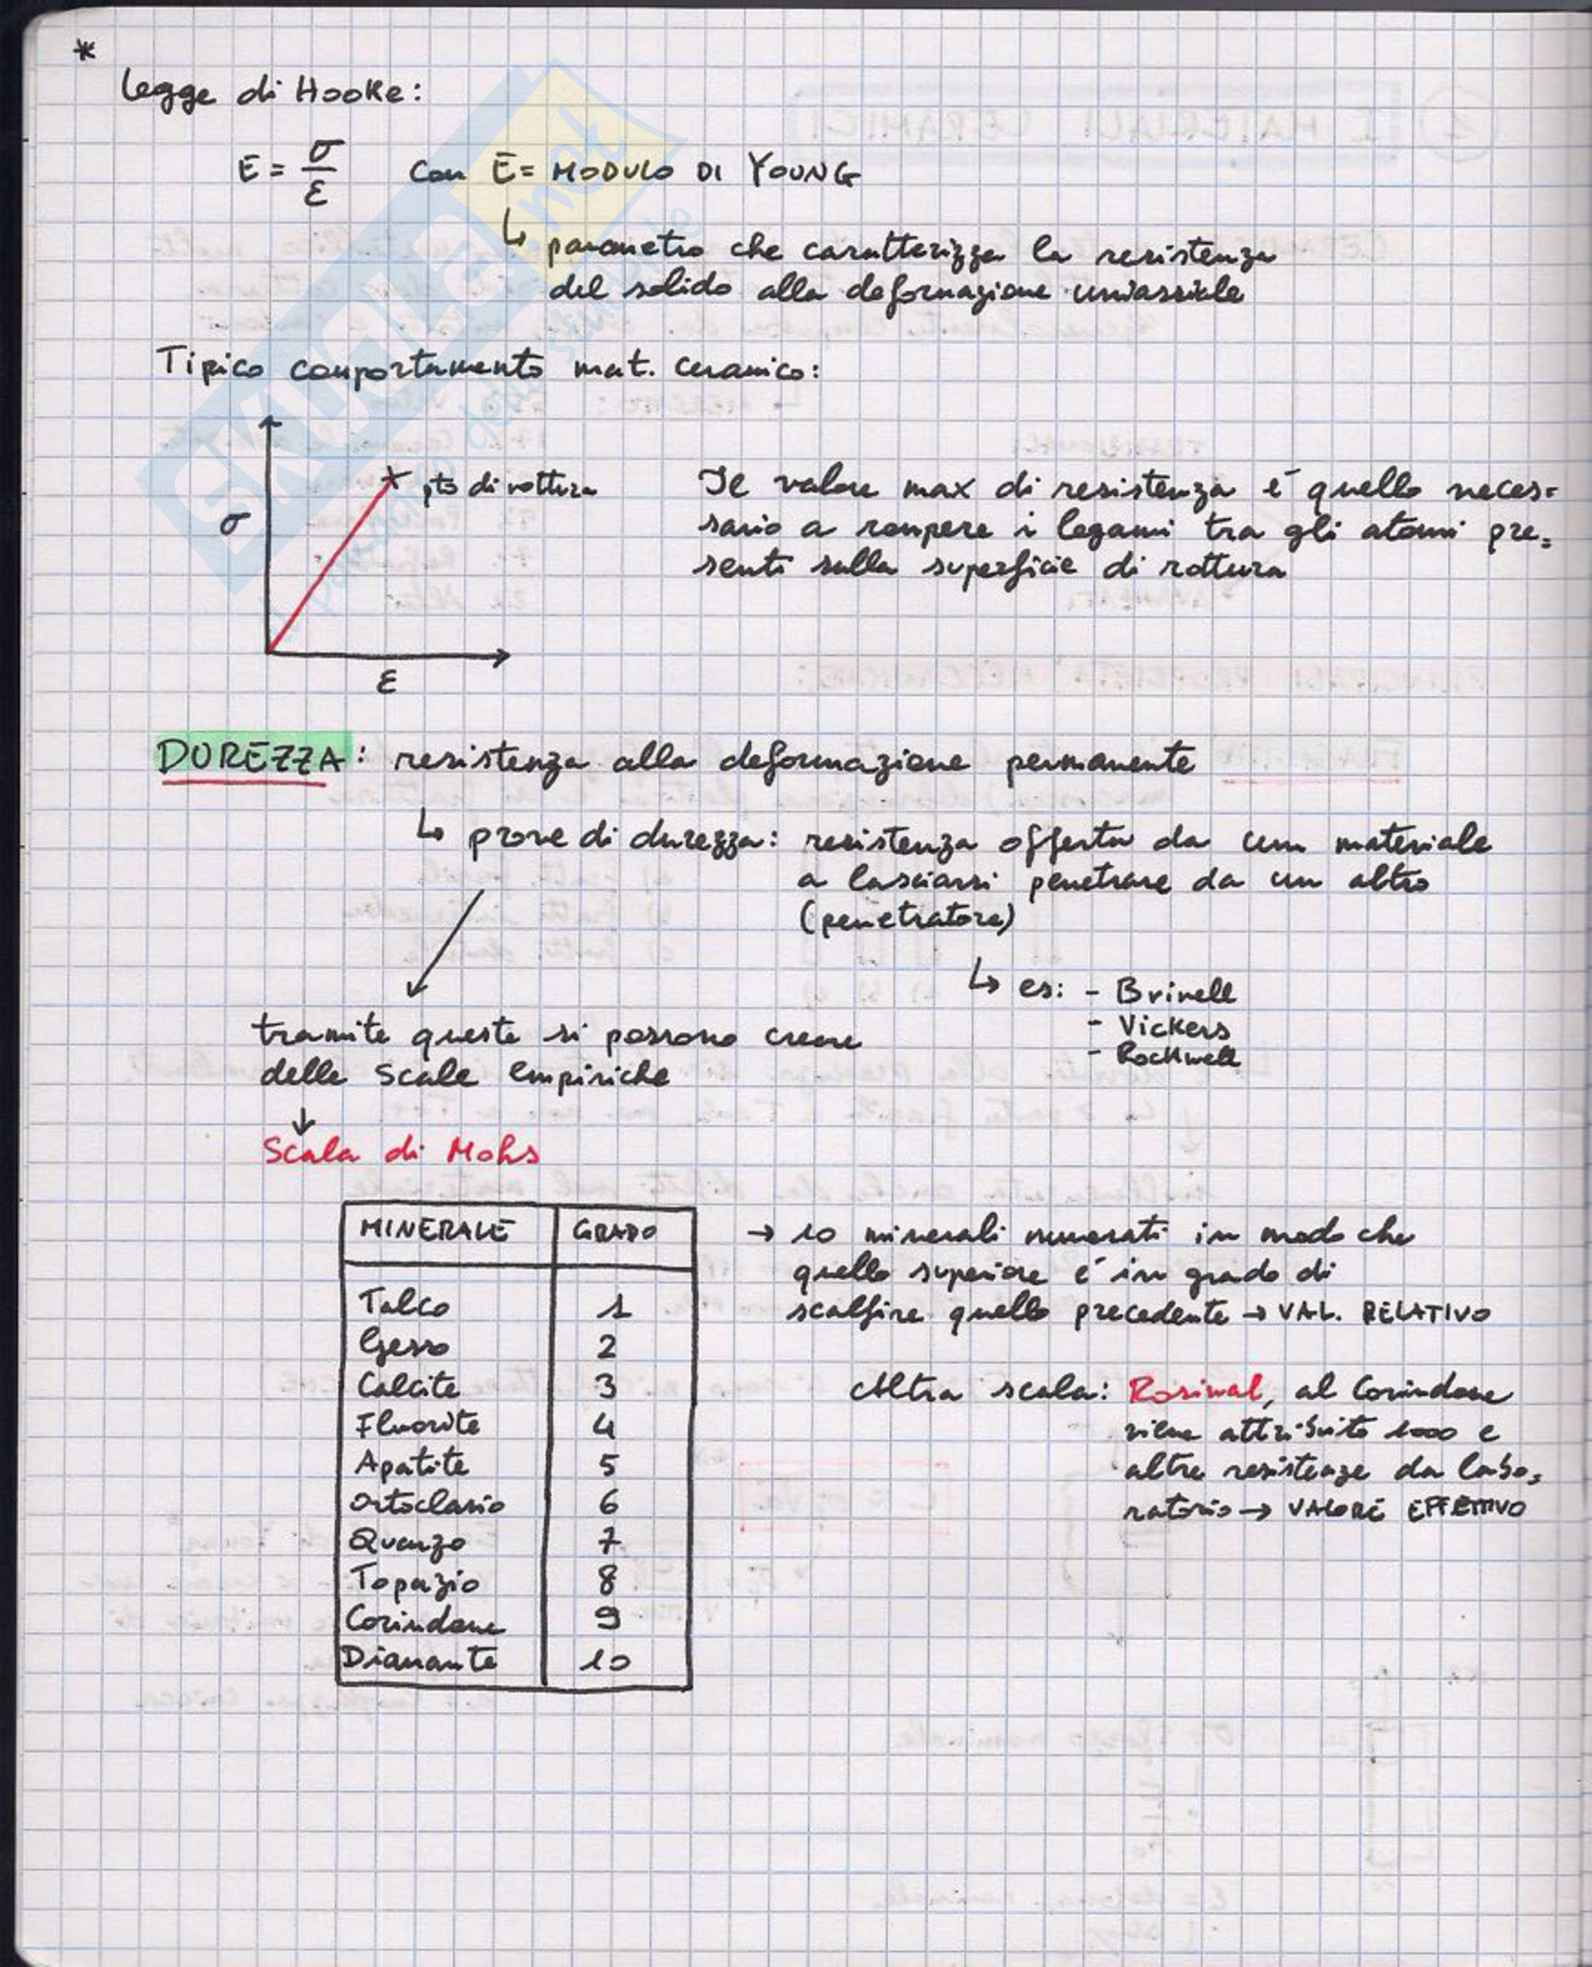 *
Legge di Hooke:
E = σ/ε con E = MODULO DI YOUNG
↳ parametro che caratterizza la resistenza
del solido alla deformazione uniassiale
Tipico comportamento mat. ceramico:
σ
pto di rottura
ε
Il valore max di resistenza è quello neces=
sario a rompere i legami tra gli atomi pre=
senti sulla superficie di rottura
DUREZZA: resistenza alla deformazione permanente
↳ prove di durezza: resistenza offerta da un materiale
a lasciarsi penetrare da un altro
(penetratore)
↳ es: - Brinell
- Vickers
- Rockwell
tramite queste si possono creare
delle scale empiriche
↓
Scala di Mohs
MINERALE GRADO
Talco 1
Gesso 2
Calcite 3
Fluorite 4
Apatite 5
Ortoclasio 6
Quarzo 7
Topazio 8
Corindone 9
Diamante 10
→ 10 minerali numerati in modo che
quello superiore è in grado di
scalfire quello precedente → VAL. RELATIVO
Altra scala: Rosiwal, al Corindone
viene attribuito 1000 e
altre resistenze da labo=
ratorio → VALORE EFFETTIVO
SKUOLA.net